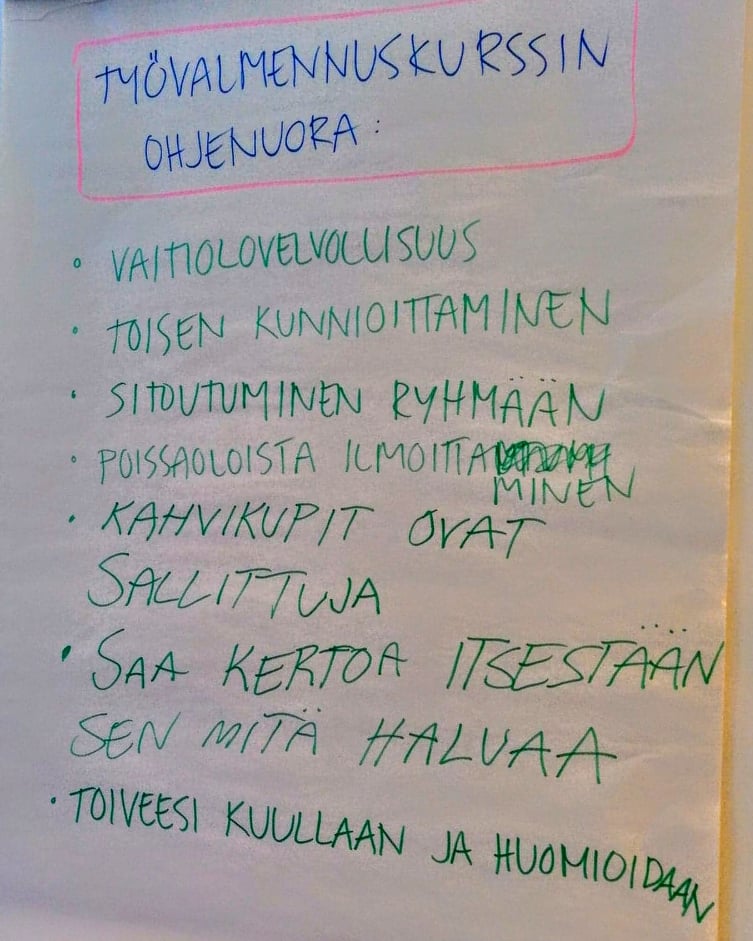 TYÖVALMENNUSKURSSIN
OHJENUORA:
• VAITIOLOVELVOLLISUUS
• TOISEN KUNNIOITTAMINEN
• SITOUTUMINEN RYHMÄÄN
• POISSAOLOISTA ILMOITTA
MINEN
• KAHVIKUPIT OVAT
SALLITTUJA
• SAA KERTOA ITSESTÄÄN
SEN MITÄ HALUAA
• TOIVEESI KUULLAAN JA HUOMIOIDAAN